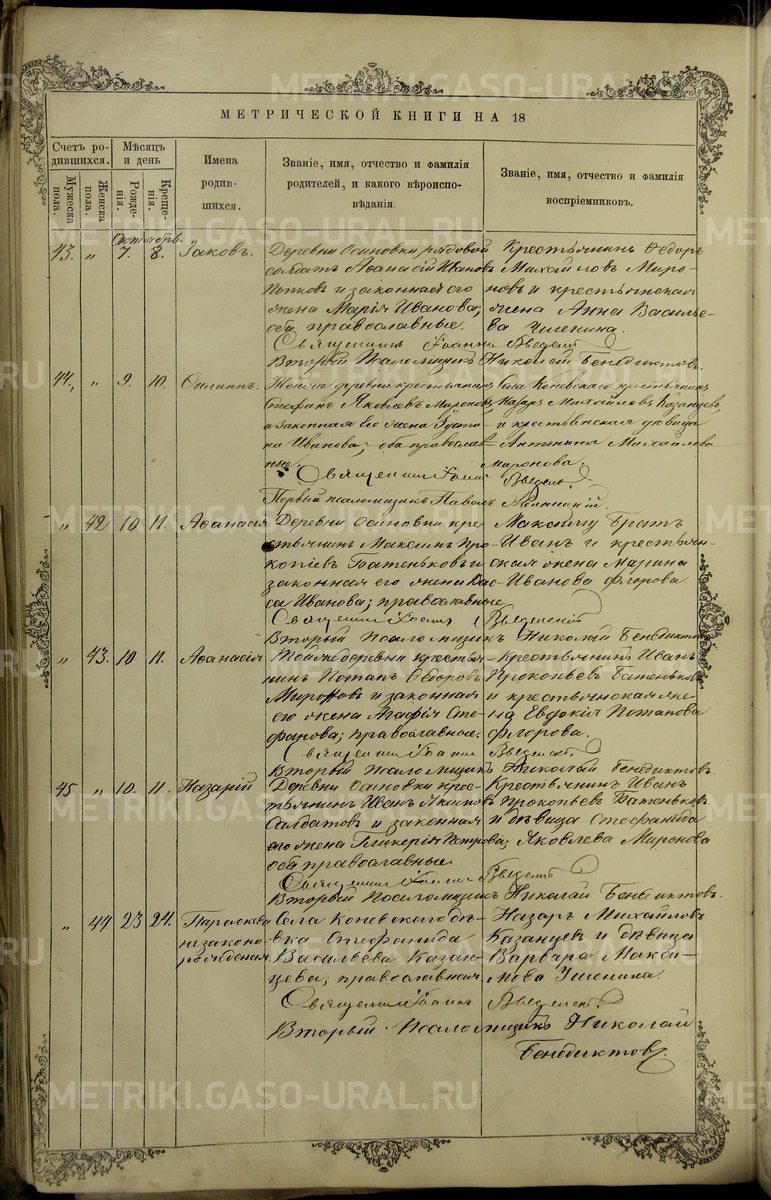 METRIKI.GASO-URAL.RU
МЕТРИЧЕСКОЙ КНИГИ НА 18
Счетъ ро-
дившихся.
Мужеска
пола.
Женска
пола.
Мѣсяцъ
и день
Рожде-
нія.
Креще-
нія.
Имена
родив-
шихся.
Званіе, имя, отчество и фамилія
родителей, и какого вѣроиспо-
вѣданія.
Званіе, имя, отчество и фамилія
воспріемниковъ.
43. " 7. 8. Іаковъ.
Деревни Осиновки рядовой
солдатъ Аѳанасій Ивановъ
и законная его
жена Марія Иванова;
оба православные.
Крестьянинъ Ѳедоръ
Михайловъ Миро-
новъ и крестьянская
жена Анна Василье-
ва
Священникъ Іоаннъ Введенскій
Второй Псаломщикъ Николай Бенедиктовъ.
44. " 9. 10.
Тойже деревни крестьянинъ
Стефанъ Яковлевъ Мироновъ
и законная его жена Усти-
на Иванова; оба православ-
ные.
Села Коневскаго крестьянинъ
Назаръ Михайловъ Казанцевъ
и крестьянская дѣвица
Антонина Михайлова
Миронова.
Священникъ Іоаннъ Введенскій
Первый псаломщикъ Павелъ
" 42 10 11. Аѳанасія
Деревни Осиновки кре-
стьянинъ Максимъ Про-
копіевъ Батеньковъ и
законная его жена
Иванова; православные
Максиму братъ
Иванъ и крестьян-
ская жена Марина
Иванова Флорова.
Священникъ Іоаннъ Введенскій
Второй Псаломщикъ Николай Бенедиктовъ
" 43. 10 11. Аѳанасія
Тойже деревни крестья-
нинъ Потапъ Ѳедоровъ
Мироновъ и законная
его жена Агафія Сте-
фанова; православные.
Крестьянинъ Иванъ
Прокопьевъ Батеньковъ
и крестьянская же-
на Евдокія Потапова
Флорова.
Священникъ Іоаннъ Введенскій
Второй Псаломщикъ Николай Бенедиктовъ
45 " 10. 11. Назарій
Деревни Осиновки крес-
тьянинъ Иванъ Якимовъ
Солдатовъ и законная
его жена Гликерія Петрова;
оба православные
Крестьянинъ Иванъ
Прокопьевъ Батеньковъ
и дѣвица Стефанида
Яковлева Миронова
Священникъ Іоаннъ Введенскій
Второй Псаломщикъ Николай Бенедиктовъ.
" 44 23 24. Параскева
незаконно-
рожденная.
Села Коневскаго дѣ-
вка Стефанида
Васильева Казан-
цева; православная
Назаръ Михайловъ
Казанцевъ и дѣвица
Варвара Макси-
мова
Священникъ Іоаннъ Введенскій
Второй Псаломщикъ Николай
Бенедиктовъ.